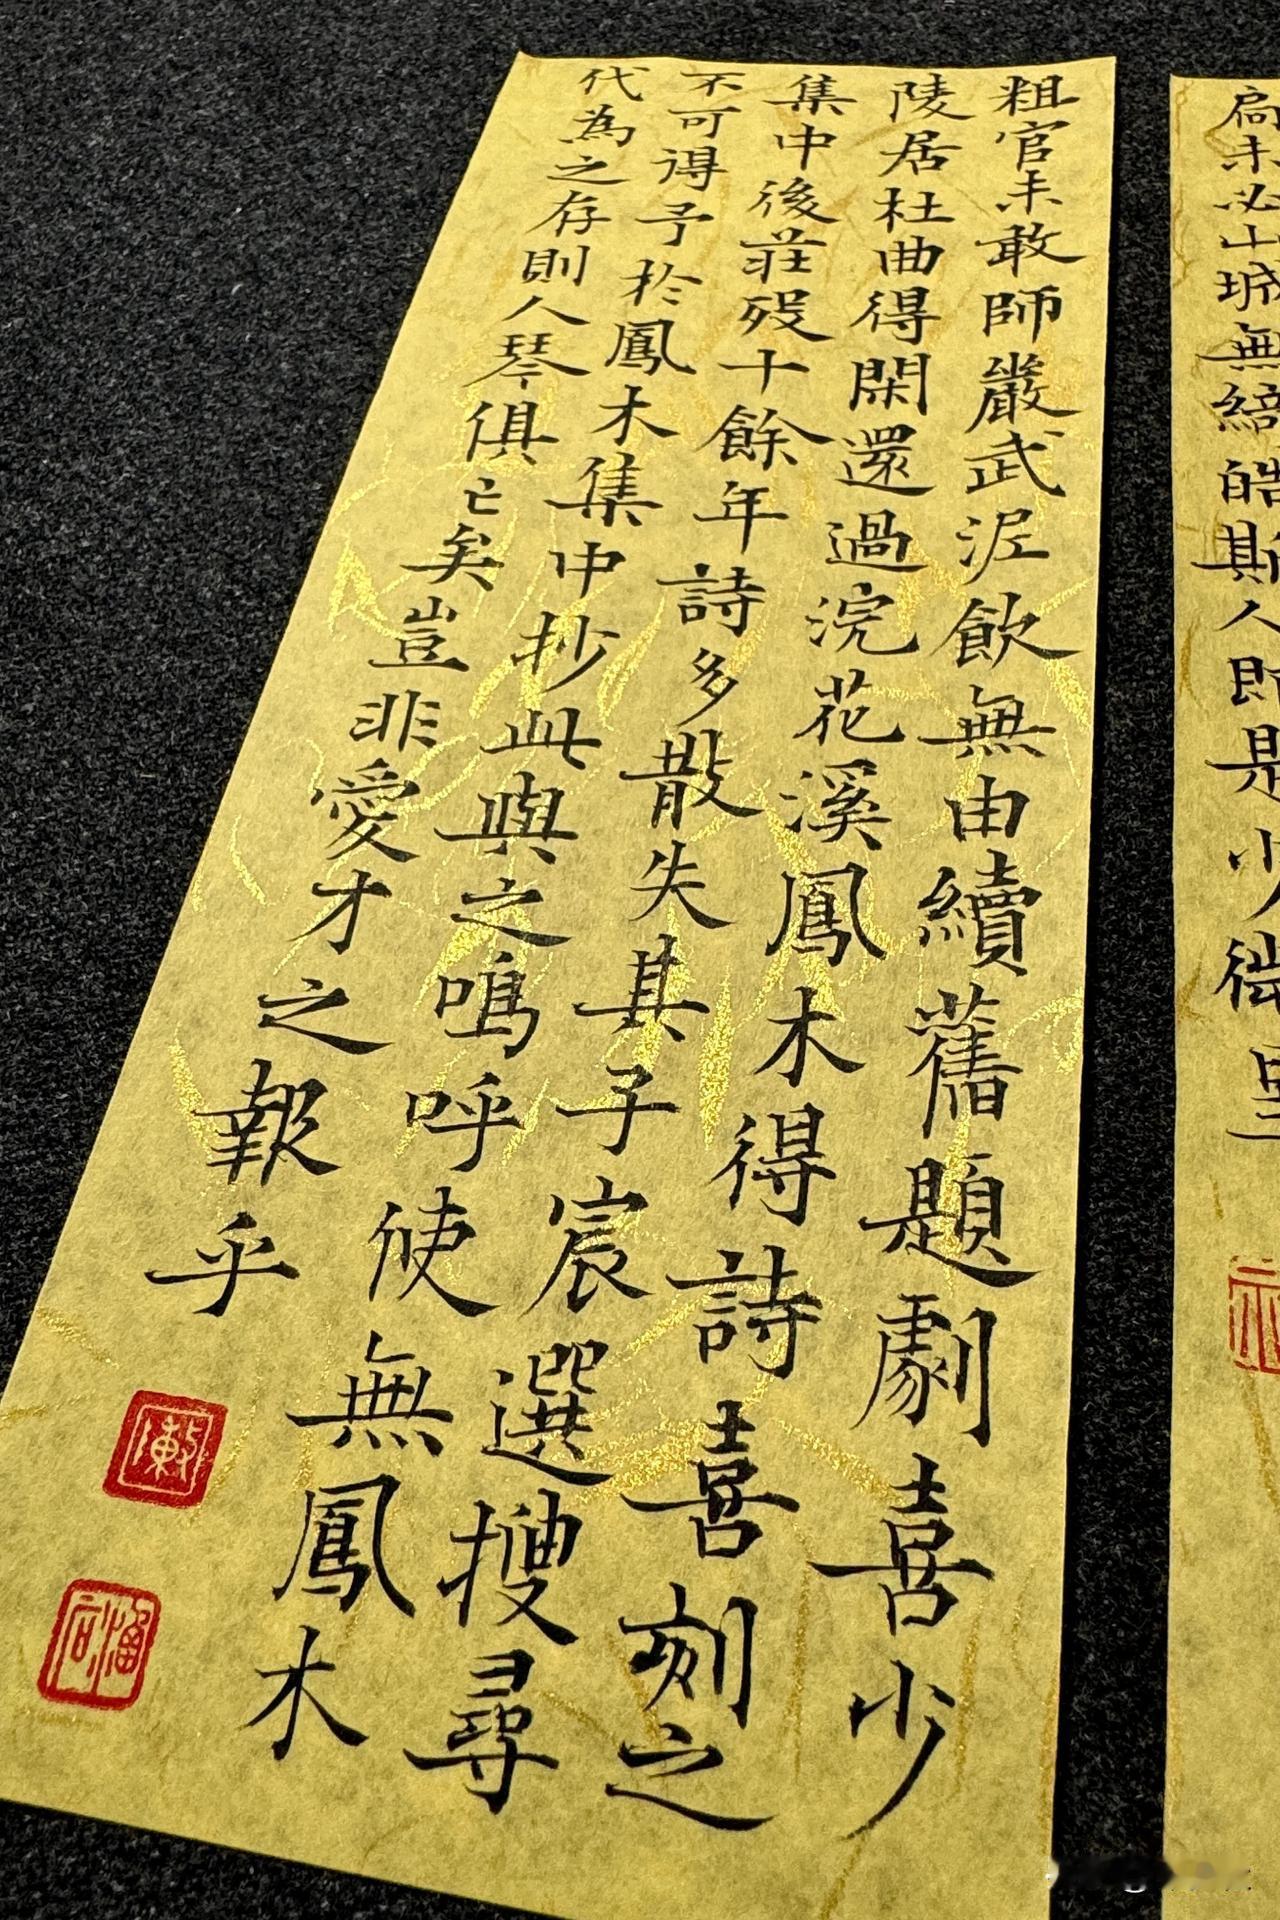 粗官未敢師嚴武泥飲無由續舊題劇喜少
陵居杜曲得閑還過浣花溪鳳木得詩喜刻之
集中後莊歿十餘年詩多散失其子宸選搜尋
不可得予於鳳木集中抄此與之嗚呼使無鳳木
代為之存則人琴俱亡矣豈非愛才之報乎
扄未必山城無綺皓斯人即是少微星